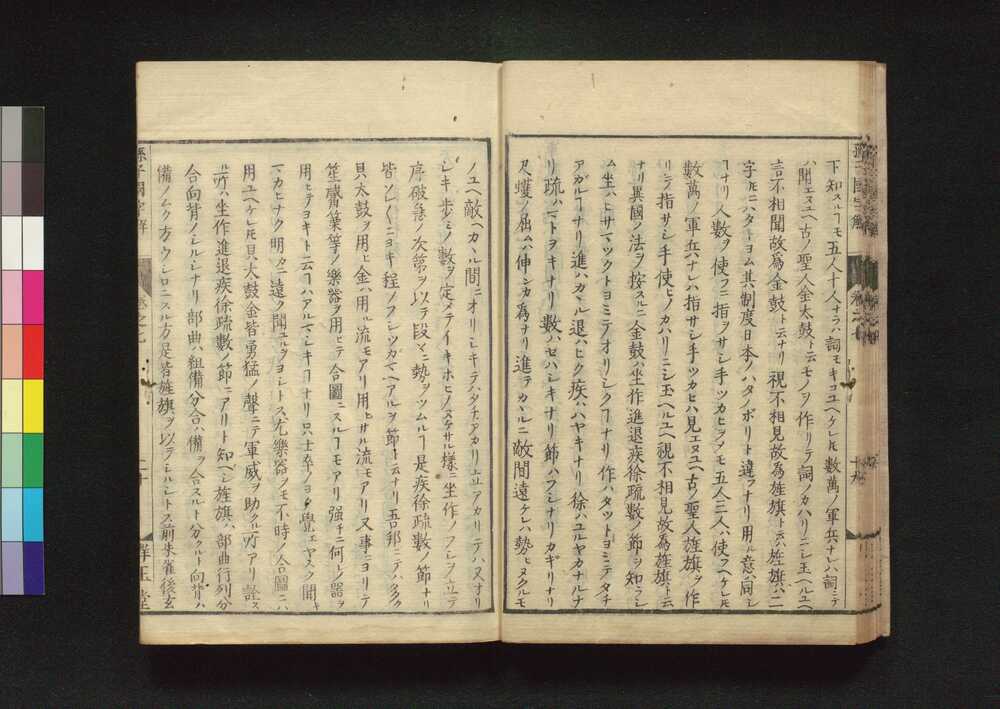 下知スルヿモ五人十人ナラハ詞モキコユヘケレ𪜈數萬ノ軍兵ナレハ詞ニテ
ハ聞エヌユヘ古ノ聖人金太鼓ト云モノヲ作リテ詞ノカハリニシ玉ヘルユヘ
言不相聞故為金鼓ト云ナリ視不相見故為旌旗ト云ハ旌旗ハ二
字𪜈ニハタトヨム其制度日本ノハタノボリト違フナリ用ル意ハ同シ
ヿナリ人數ヲ使フニ指ヲサシ手ツカヒスルモ五人三人ハ使フヘケレ𪜈
數萬ノ軍兵ナレハ指サシ手ツカヒハ見エヌユヘ古ノ聖人旌旗ヲ作
リテ指サシ手使ヒノカハリニシ玉ヘルユヘ視不相見故為旌旗ト云
ナリ異國ノ法ヲ按スルニ金鼓ハ坐作進退疾徐疏數ノ節ヲ知ラシ
ム坐ハヒサマツクトヨミテオリシクヿナリ作ハタツトヨミテタチ
アガルヿナリ進ハカヽル退ハヒク疾ハハヤキナリ徐ハユルヤカナルナ
リ疏ハマトヲキナリ數ハセハシキナリ節ハフシナリカギリナリ
尺蠖ノ屈ムハ伸ンカ為ナリ進テカヽルニ敵間遠ケレハ勢ヒヌクルモ
ノユヘ敵ヘカヽル間ニオリシキテハタチアカリ立アカリテハ又オリ
シキ歩ミノ數ヲ定メテイキホヒノヌケサル樣ニ坐作ノフシヲ立テ
序破急ノ次第ヲ以テ段々ニ勢ヲツムルヿ是疾徐疏數ノ節ナリ
皆ソレ〳〵ニヨキ程ノフシツカマヘアルヲ節ト云ナリ吾邦ニテハ多ク
貝太鼓ヲ用ヒ金ハ用ル流モアリ用ヒサル流モアリ又事ニヨリテ
笙觱篥等ノ樂器ヲ用ヒテ合圖ニスルヿモアリ強チニ何レノ器ヲ
用ヒテヨキト云ヿハアルマシキヿナリ只士卒ノヨク覺エヤスク聞キ
マカヒナク明カニ遠ク聞ユルヲヨシトス尤樂器ヲモ不時ノ合圖ニハ
用ユヘケレ𪜈貝太鼓金皆勇猛ノ聲ニテ軍威ヲ助クル所アリ詮ス
ル所ハ坐作進退疾徐疏數ノ節ニアリト知ヘシ旌旗ハ部曲行列分
合向背ノシルシナリ部曲ハ組備分合ハ備ヲ合スルト分クルト向背ハ
備ノムク方ウシロニスル方是皆旌旗ヲ以テシルシトス前朱雀後玄
二十
群玉堂